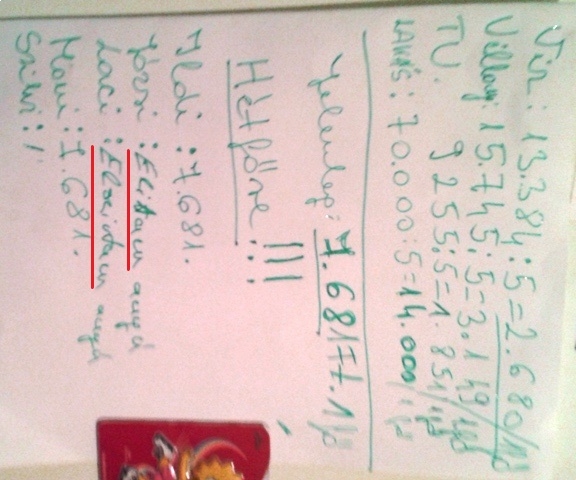 Víz: 13.384:5=2.680/fő
Villany: 15.745:5=3.149/fő
TV: 9255:5=1.851/fő
LAKÁS: 70.000:5=14.000/fő
Jelenleg: 7.681Ft./fő
Hétfőre:!!!
Ildi: 7.681.
Józsi: Elitam anyyá
Laci: Elositam anyyá
Mami: 7.681.
Szilvi: !